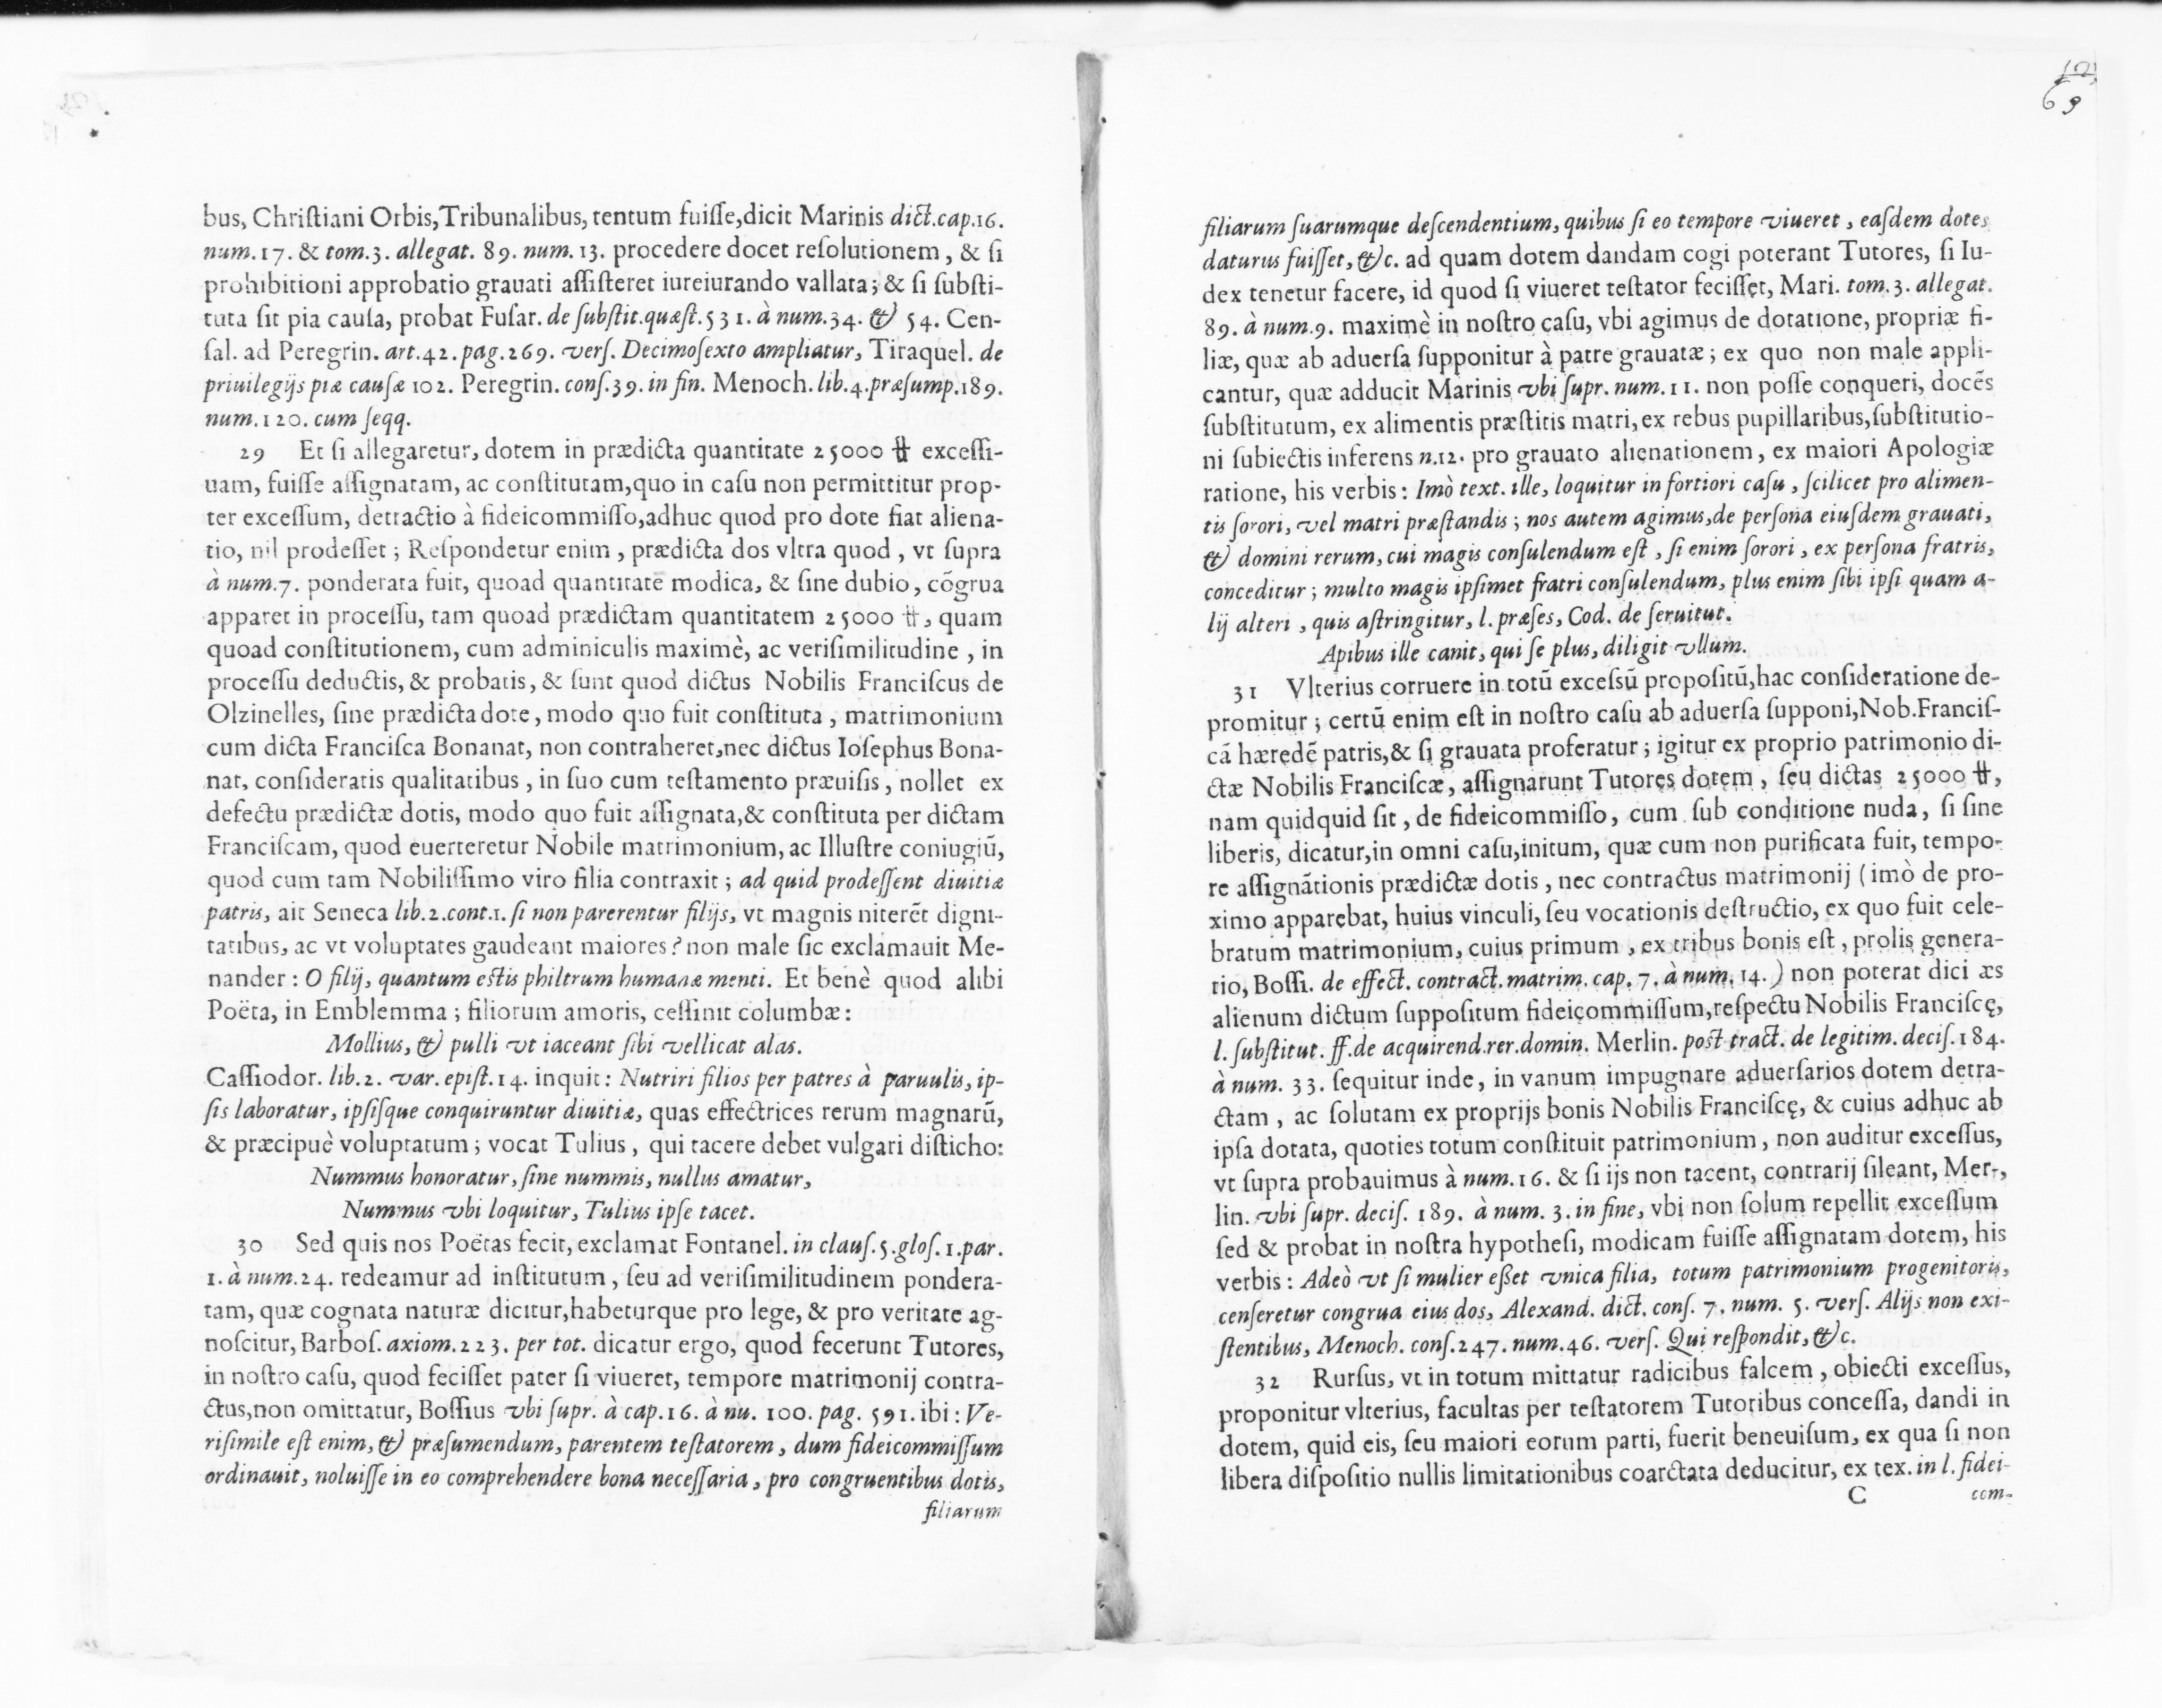 bus, Chriſtiani Orbis, Tribunalibus, tentum fuiſſe, dicit Marinis dict. cap. 16.
num. 17. & tom. 3. allegat. 89. num. 13. procedere docet reſolutionem, & ſi
prohibitioni approbatio grauati aſſiſteret iureiurando vallata; & ſi ſubſti-
tuta ſit pia cauſa, probat Fuſar. de ſubſtit. quæſt. 531. à num. 34. & 54. Cen-
ſal. ad Peregrin. art. 42. pag. 269. verſ. Decimoſexto ampliatur, Tiraquel. de
priuilegijs piæ cauſæ 102. Peregrin. conſ. 39. in fin. Menoch. lib. 4. præſump. 189.
num. 120. cum ſeqq.
29 Et ſi allegaretur, dotem in prædicta quantitate 25000 ₶ exceſſi-
uam, fuiſſe aſſignatam, ac conſtitutam, quo in caſu non permittitur prop-
ter exceſſum, detractio à fideicommiſſo, adhuc quod pro dote fiat aliena-
tio, nil prodeſſet; Reſpondetur enim, prædicta dos vltra quod, vt ſupra
à num. 7. ponderata fuit, quoad quantitatē modica, & ſine dubio, cõgrua
apparet in proceſſu, tam quoad prædictam quantitatem 25000 ₶, quam
quoad conſtitutionem, cum adminiculis maximè, ac veriſimilitudine, in
proceſſu deductis, & probatis, & ſunt quod dictus Nobilis Franciſcus de
Olzinelles, ſine prædicta dote, modo quo fuit conſtituta, matrimonium
cum dicta Franciſca Bonanat, non contraheret, nec dictus Ioſephus Bona-
nat, conſideratis qualitatibus, in ſuo cum teſtamento præuiſis, nollet ex
defectu prædictæ dotis, modo quo fuit aſſignata, & conſtituta per dictam
Franciſcam, quod euerteretur Nobile matrimonium, ac Illuſtre coniugiũ,
quod cum tam Nobiliſſimo viro filia contraxit; ad quid prodeſſent diuitiæ
patris, ait Seneca lib. 2. cont. 1. ſi non parerentur filijs, vt magnis niterēt digni-
tatibus, ac vt voluptates gaudeant maiores? non male ſic exclamauit Me-
nander: O filij, quantum eſtis philtrum humanæ menti. Et benè quod alibi
Poëta, in Emblemma; filiorum amoris, ceſſinit columbæ:
Mollius, & pulli vt iaceant ſibi vellicat alas.
Caſſiodor. lib. 2. var. epiſt. 14. inquit: Nutriri filios per patres à paruulis, ip-
ſis laboratur, ipſiſque conquiruntur diuitiæ, quas effectrices rerum magnarũ,
& præcipuè voluptatum; vocat Tulius, qui tacere debet vulgari diſticho:
Nummus honoratur, ſine nummis, nullus amatur,
Nummus vbi loquitur, Tulius ipſe tacet.
30 Sed quis nos Poëtas fecit, exclamat Fontanel. in clauſ. 5. gloſ. 1. par.
1. à num. 24. redeamur ad inſtitutum, ſeu ad veriſimilitudinem pondera-
tam, quæ cognata naturæ dicitur, habeturque pro lege, & pro veritate ag-
noſcitur, Barboſ. axiom. 223. per tot. dicatur ergo, quod fecerunt Tutores,
in noſtro caſu, quod feciſſet pater ſi viueret, tempore matrimonij contra-
ctus, non omittatur, Boſſius vbi ſupr. à cap. 16. à nu. 100. pag. 591. ibi: Ve-
riſimile eſt enim, & præſumendum, parentem teſtatorem, dum fideicommiſſum
ordinauit, noluiſſe in eo comprehendere bona neceſſaria, pro congruentibus dotis,
filiarum
12
69
filiarum ſuarumque deſcendentium, quibus ſi eo tempore viueret, eaſdem dotes
daturus fuiſſet, &c. ad quam dotem dandam cogi poterant Tutores, ſi Iu-
dex tenetur facere, id quod ſi viueret teſtator feciſſet, Mari. tom. 3. allegat.
89. à num. 9. maximè in noſtro caſu, vbi agimus de dotatione, propriæ fi-
liæ, quæ ab aduerſa ſupponitur à patre grauatæ; ex quo non male appli-
cantur, quæ adducit Marinis vbi ſupr. num. 11. non poſſe conqueri, docēs
ſubſtitutum, ex alimentis præſtitis matri, ex rebus pupillaribus, ſubſtitutio-
ni ſubiectis inferens n. 12. pro grauato alienationem, ex maiori Apologiæ
ratione, his verbis: Imò text. ille, loquitur in fortiori caſu, ſcilicet pro alimen-
tis ſorori, vel matri præſtandis; nos autem agimus, de perſona eiuſdem grauati,
& domini rerum, cui magis conſulendum eſt, ſi enim ſorori, ex perſona fratris,
conceditur; multo magis ipſimet fratri conſulendum, plus enim ſibi ipſi quam a-
lij alteri, quis aſtringitur, l. præſes, Cod. de ſeruitut.
Apibus ille canit, qui ſe plus, diligit vllum.
31 Vlterius corruere in totũ exceſsũ propoſitũ, hac conſideratione de-
promitur; certũ enim eſt in noſtro caſu ab aduerſa ſupponi, Nob. Franciſ-
cã hæredẽ patris, & ſi grauata proferatur; igitur ex proprio patrimonio di-
ctæ Nobilis Franciſcæ, aſſignarunt Tutores dotem, ſeu dictas 25000 ₶,
nam quidquid ſit, de fideicommiſſo, cum ſub conditione nuda, ſi ſine
liberis, dicatur, in omni caſu, initum, quæ cum non purificata fuit, tempo-
re aſſignãtionis prædictæ dotis, nec contractus matrimonij (imò de pro-
ximo apparebat, huius vinculi, ſeu vocationis deſtructio, ex quo fuit cele-
bratum matrimonium, cuius primum, ex tribus bonis eſt, prolis genera-
tio, Boſſi. de effect. contract. matrim. cap. 7. à num. 14. ) non poterat dici æs
alienum dictum ſuppoſitum fideicommiſſum, reſpectu Nobilis Franciſcę,
l. ſubſtitut. ff. de acquirend. rer. domin. Merlin. poſt tract. de legitim. deciſ. 184.
à num. 33. ſequitur inde, in vanum impugnare aduerſarios dotem detra-
ctam, ac ſolutam ex proprijs bonis Nobilis Franciſcę, & cuius adhuc ab
ipſa dotata, quoties totum conſtituit patrimonium, non auditur exceſſus,
vt ſupra probauimus à num. 16. & ſi ijs non tacent, contrarij ſileant, Mer-,
lin. vbi ſupr. deciſ. 189. à num. 3. in fine, vbi non ſolum repellit exceſſum
ſed & probat in noſtra hypotheſi, modicam fuiſſe aſſignatam dotem, his
verbis: Adeò vt ſi mulier eßet vnica filia, totum patrimonium progenitoris,
cenſeretur congrua eius dos, Alexand. dict. conſ. 7. num. 5. verſ. Alijs non exi-
ſtentibus, Menoch. conſ. 247. num. 46. verſ. Qui reſpondit, &c.
32 Rurſus, vt in totum mittatur radicibus falcem, obiecti exceſſus,
proponitur vlterius, facultas per teſtatorem Tutoribus conceſſa, dandi in
dotem, quid eis, ſeu maiori eorum parti, fuerit beneuiſum, ex qua ſi non
libera diſpoſitio nullis limitationibus coarctata deducitur, ex tex. in l. fidei-
C com-